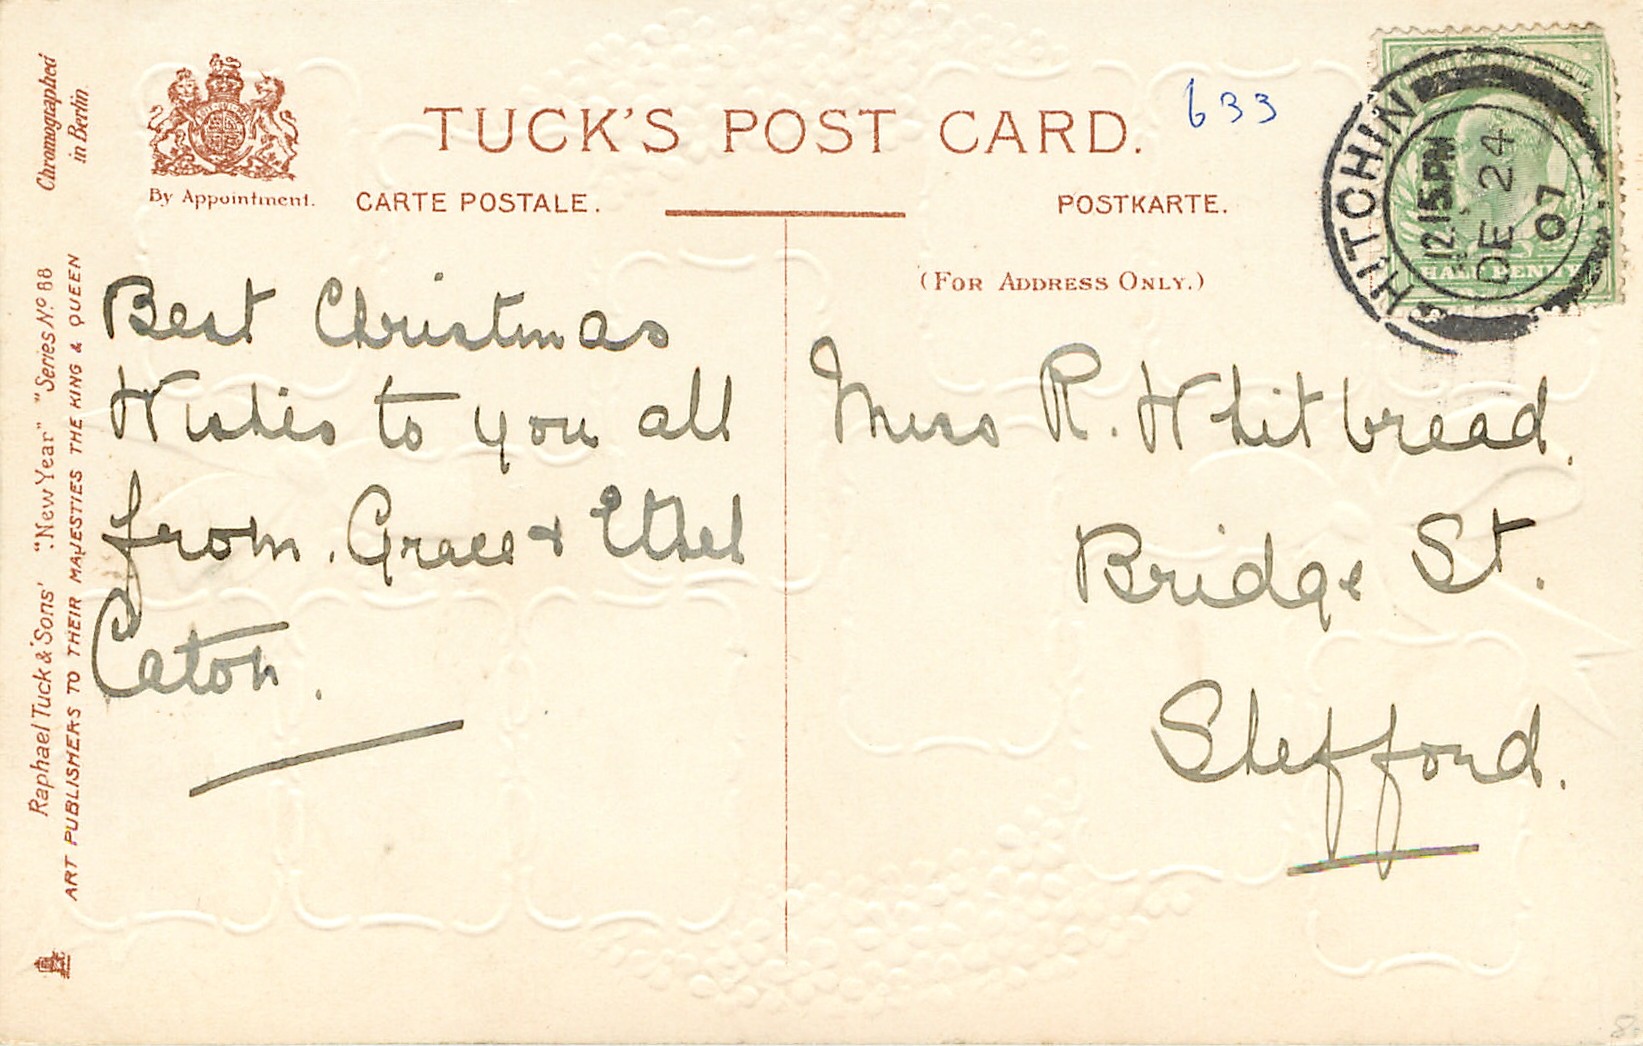 TUCK'S POST CARD.
633
By Appointment.
CARTE POSTALE.
POSTKARTE.
(FOR ADDRESS ONLY.)
Chromographed
in Berlin.
Raphael Tuck & Sons' "New Year" Series No. 88
ART PUBLISHERS TO THEIR MAJESTIES THE KING & QUEEN
HITCHIN
12.15PM
DE 24
07
HALF PENNY
Best Christmas
Wishes to you all
from. Grace & Ethel
Caton.
Miss R. Whitbread.
Bridge St.
Shefford.